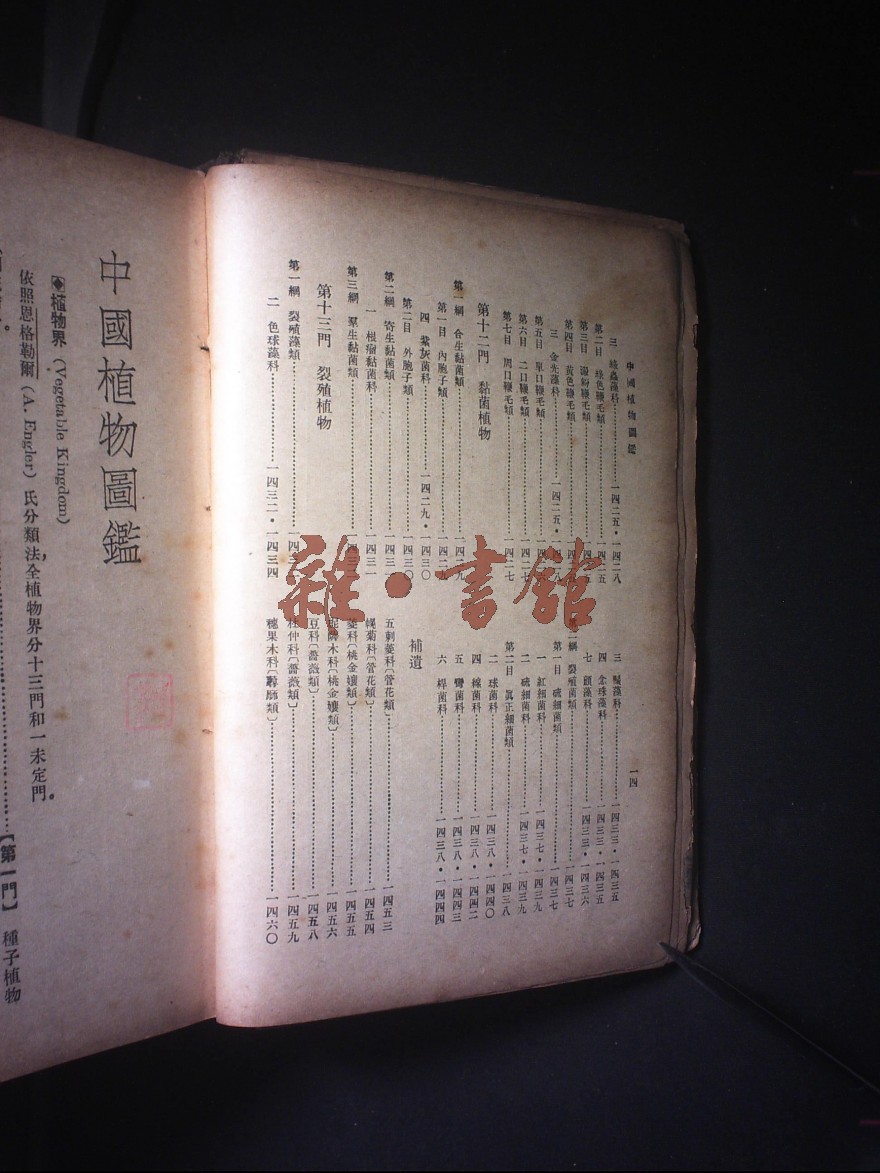 中國植物圖鑑
一四
三 綠蟲藻科 一四二五・一四二八
第二目 綠色鞭毛類 一四二五
第三目
第四目 黃色鞭毛類
三 金光藻科 一四二五・
第五目 單口鞭毛類
第六目 二口鞭毛類 一四二七
第七目 周口鞭毛類 一四二七
第十二門 黏菌植物
第一綱 合生黏菌類 一四二九
第一目 內胞子類
四 紫灰菌科 一四二九・一四三〇
第二目 外胞子類 一四三〇
第二綱 寄生黏菌類 一四三一
一 根瘤黏菌科 一四三一
第三綱 羣生黏菌類
第十三門 裂殖植物
第一綱 裂殖藻類
二 色球藻科 一四三二・一四三四
三 顫藻科 一四三三・一四三五
四 念珠藻科 一四三三・一四三五
七 一四三三・一四三六
綱 裂殖菌類 一四三七
第一目 硫細菌類 一四三七
一 紅細菌科 一四三七・一四三九
二 硫細菌科 一四三七・一四三九
第二目 眞正細菌類 一四三八
二 球菌科 一四三八・一四四〇
四 線菌科 一四三八・一四四二
五 彎菌科 一四三八・一四四三
六 桿菌科 一四三八・一四四四
補遺
五刺菱科〔管花類〕 一四五三
菊科〔管花類〕 一四五四
菱科〔桃金孃類〕 一四五五
木科〔桃金孃類〕 一四五六
豆科〔薔薇類〕 一四五八
杜仲科〔薔薇類〕 一四五九
穗果木科 一四六〇
中國植物圖鑑
植物界 (Vegetable Kingdom)
依照恩格勒爾 (A. Engler) 氏分類法,全植物界分十三門和一未定門。
【第一門】 種子植物
雜・書館